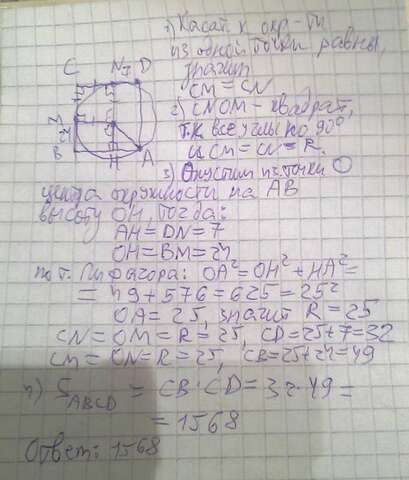 1) Касат. к окр-ти
из одной точки равны,
значит
CM = CN
2) CNOM - квадрат,
т.к. все углы по 90°
и CM = CN = R.
3) Опустим из точки O
C N D
M
24
B H A
центра окружности на AB
высоту OH, тогда:
AH = DN = 7
OH = BM = 24
по т. Пифагора: OA² = OH² + HA² =
= 49 + 576 = 625 = 25²
OA = 25, значит R = 25
CN = OM = R = 25, CD = 25 + 7 = 32
CM = ON = R = 25, CB = 25 + 24 = 49
4) S ABCD = CB · CD = 32 · 49 =
= 1568
Ответ: 1568